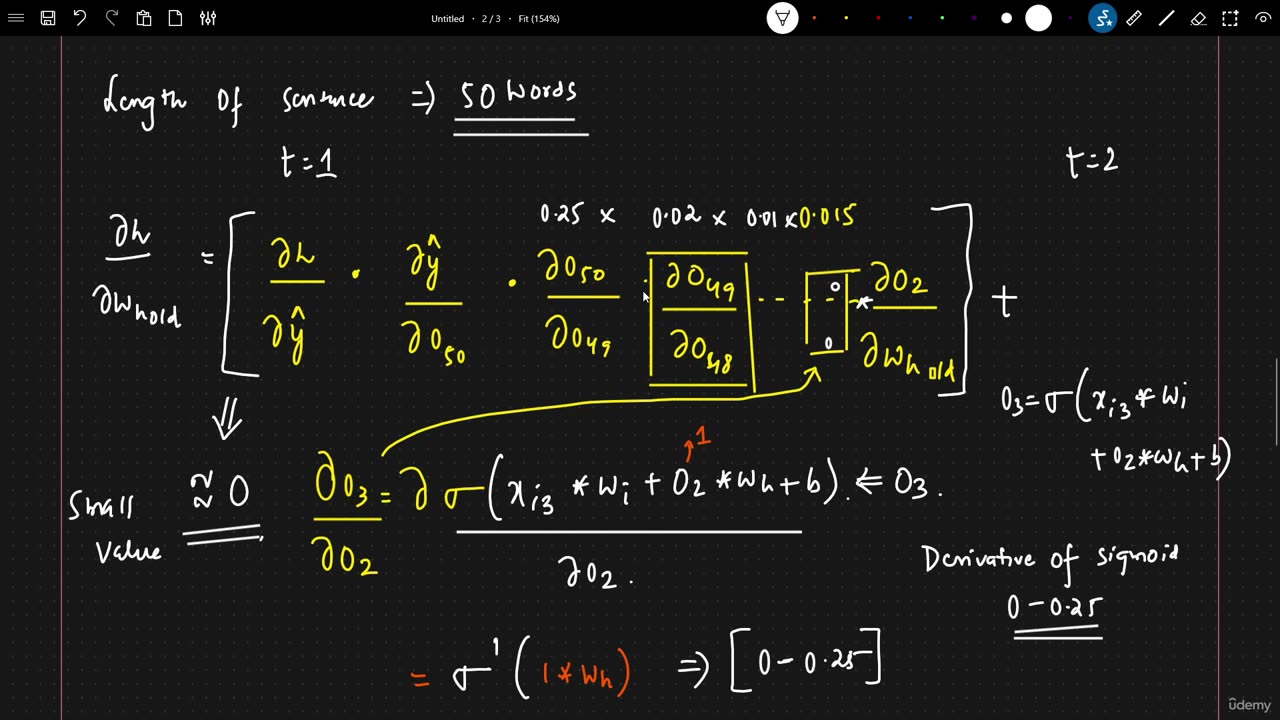 Untitled • 2 / 3 • Fit (154%)
Length Of sentence ⇒ 50 Words
t = 1
t = 2
0.25 × 0.02 × 0.01 × 0.015
∂L/∂Wh old = [ ∂L/∂ŷ · ∂ŷ/∂O50 · ∂O50/∂O49 · ∂O49/∂O48 - - - - - 0/0 * ∂O2/∂Wh old ] +
O3 = σ(xi3 * Wi
+ O2 * Wh + b)
⇓
1
Small Value ≈ 0
∂O3/∂O2 = ∂ σ(xi3 * Wi + O2 * Wh + b). ⇐ O3.
∂O2.
Derivative of sigmoid
0 - 0.25
= σ' (1 * Wh) ⇒ [0 - 0.25]
ûdemy